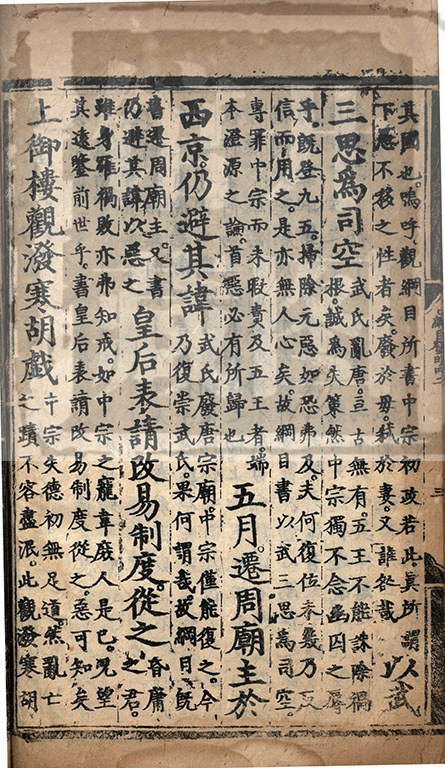 其國也嗚呼觀綱目所書中宗初政若此真所謂
下愚不移之性者矣廢於母弒於妻又誰咎哉
以武
三思為司空
武氏亂唐亘古無有五王不能誅除禍
根誠為失策然中宗獨不念幽囚之辱
乎既登九五掃除元惡如恐弗及夫何復位未幾乃反
信而用之是亦無人心矣故綱目書以武三思為司空
專罪中宗而未暇責及五王者端
本澄源之論首惡必有所歸也
五月遷周廟主於
西京仍避其諱
武氏廢唐宗廟中宗僅能復之今
乃復崇武氏果何謂哉故綱目既
書遷周廟主又書
仍避其諱以惡之
皇后表請改易制度從之
昏庸
之君
雖身罹禍敗亦弗知戒如中宗之寵韋庶人是已況望
其遠鑒前世乎書皇后表請改易制度從之惡可知矣
上御樓觀潑寒胡戲
中宗失德初無足道然亂亡
之蹟不容盡泯此觀潑寒胡
三